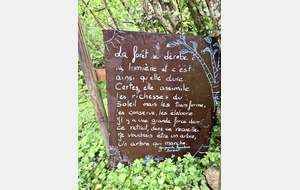 La forêt se dérobe à
la lumière et c'est
ainsi qu'elle dure.
Certes, elle assimile
les richesses du
Soleil mais les transforme,
les conserve, les élabore.
Il y a une grande force dans
Ce retrait, dans ce recueillement
Je voudrais être un arbre,
Un arbre qui marche.